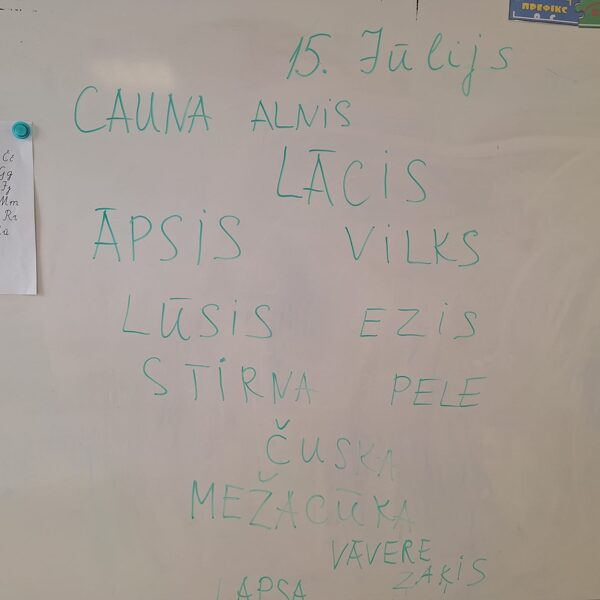 ПРЕФІКС
15. Jūlijs
CAUNA ALNIS
LĀCIS
ĀPSIS VILKS
LŪSIS EZIS
STIRNA PELE
ČUSKA
MEŽACŪKA
VĀVERE
ZAĶIS
LAPSA
Gg
Mm
Rr